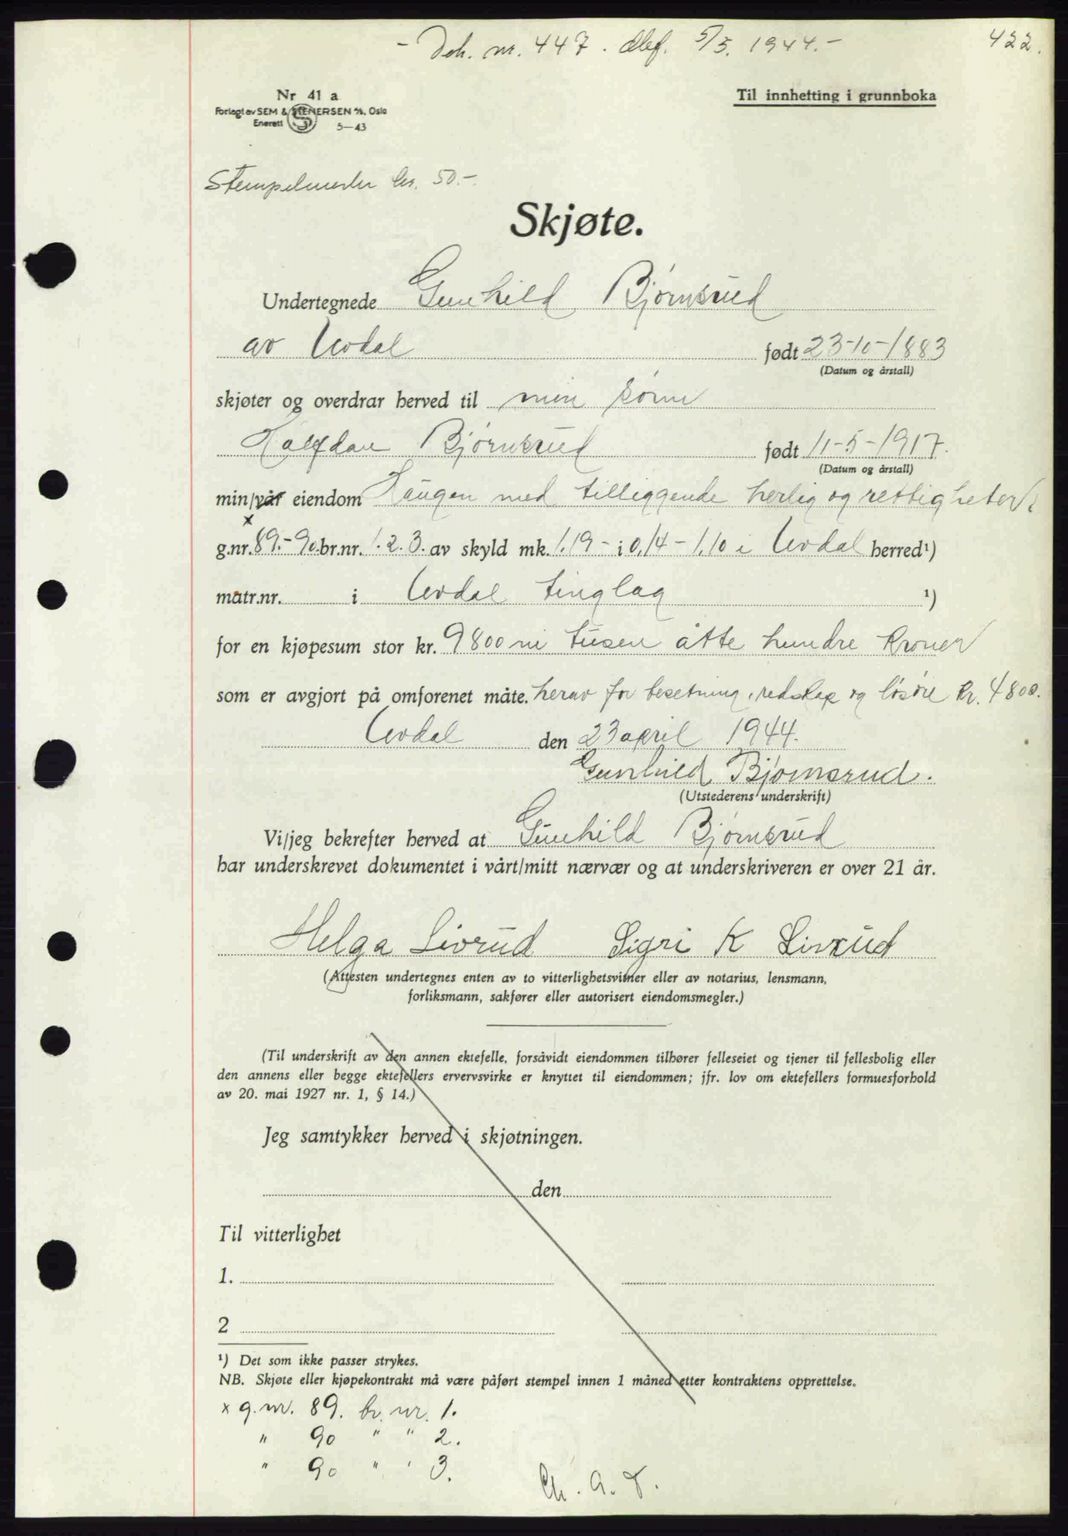 - Dok. nr. 447. dbf. 5/5. 1944.-
422.
Nr 41 a
Forlagt av SEM & STENERSEN A/S, Oslo
Enerett 5—43
Til innhefting i grunnboka
Stempelmerker kr. 50.-
Skjøte.
Undertegnede Gunhild Bjørnsrud
av Uvdal født 23-10-1883
(Datum og årstall)
skjøter og overdrar herved til min sønn
Halfdan Bjørnsrud født 11-5-1917.
(Datum og årstall)
min/vår eiendom Haugen med tilliggende herlig og rettigheter
x
g.nr. 89.-90. br.nr. 1. 2. 3. av skyld mk. 1.19 - i 0,14 - 1.10 i Uvdal herred¹)
matr.nr. i Uvdal tinglag ¹)
for en kjøpesum stor kr. 9800 ni tusen åtte hundre kroner
som er avgjort på omforenet måte. herav for besetning, redskap og løsøre kr. 4800.
Uvdal den 23 april 1944.
Gunhild Bjørnsrud.
(Utstederens underskrift)
Vi/jeg bekrefter herved at Gunhild Bjørnsrud
har underskrevet dokumentet i vårt/mitt nærvær og at underskriveren er over 21 år.
Helga Livrud Sigri K Livrud
(Attesten undertegnes enten av to vitterlighetsvitner eller av notarius, lensmann,
forliksmann, sakfører eller autorisert eiendomsmegler.)
(Til underskrift av den annen ektefelle, forsåvidt eiendommen tilhører felleseiet og tjener til fellesbolig eller
den annens eller begge ektefellers ervervsvirke er knyttet til eiendommen; jfr. lov om ektefellers formuesforhold
av 20. mai 1927 nr. 1, § 14.)
Jeg samtykker herved i skjøtningen.
den
Til vitterlighet
1.
2
¹) Det som ikke passer strykes.
NB. Skjøte eller kjøpekontrakt må være påført stempel innen 1 måned etter kontraktens opprettelse.
x g.nr. 89. br. nr. 1.
" 90 " " 2.
" 90 " " 3.